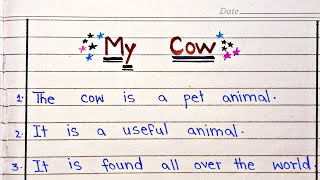 Date
My Cow
1. The cow is a pet animal.
2. It is a useful animal.
3. It is found all over the world.